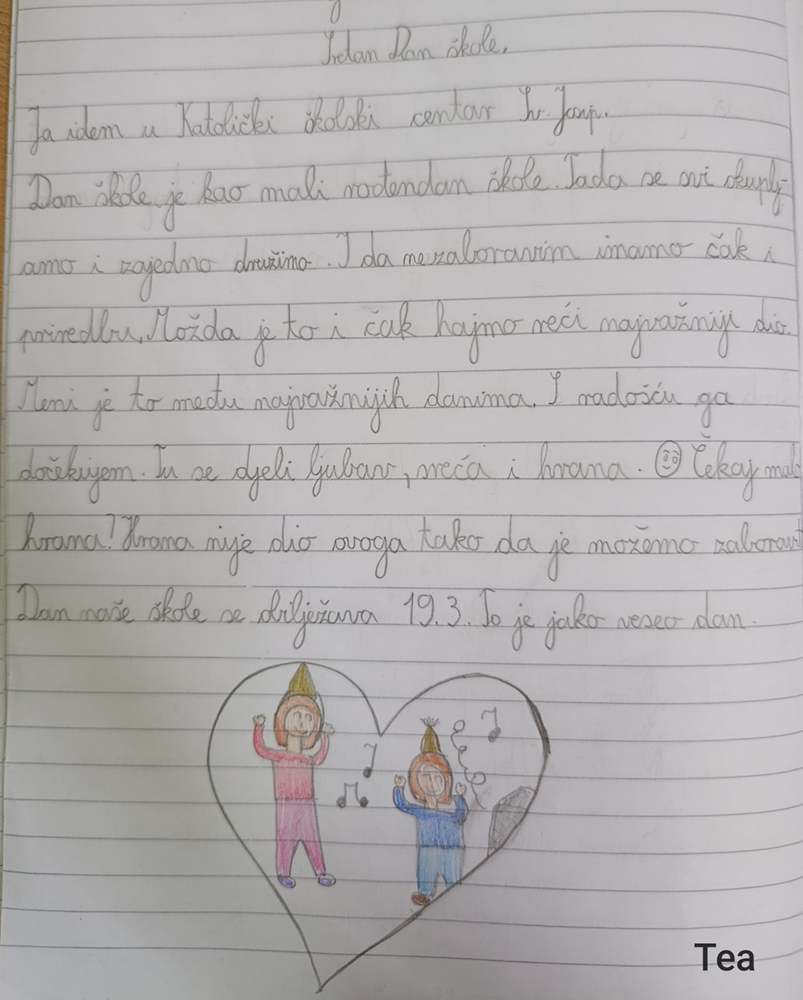 Sretan Dan škole.
Ja idem u Katolički školski centar Sv. Josip.
Dan škole je kao mali rođendan škole. Tada se svi okuplj-
amo i zajedno družimo. I da ne zaboravim imamo čak i
priredbu. Možda je to i čak hajmo reći najvažniji dio.
Meni je to među najvažnijih danima. S radošću ga
dočekujem. Tu se djeli ljubav, sreća i hrana. ☺ Čekaj malo
hrana? Hrana nije dio ovoga tako da je možemo zaboravit
Dan naše škole se obilježava 19.3. To je jako veseo dan.
Tea